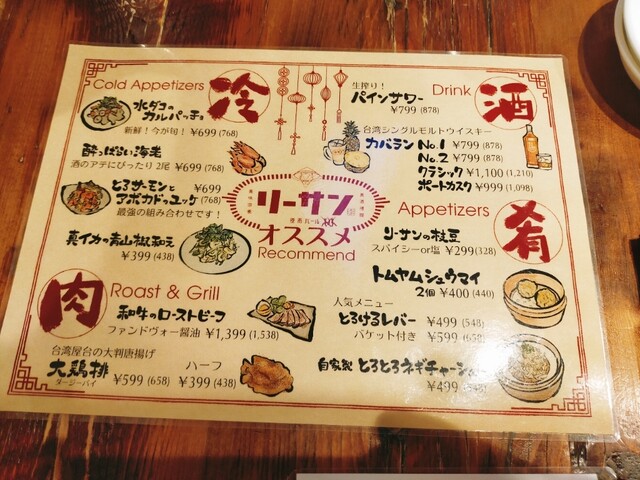 Cold Appetizers
冷
水ダコの
カルパッチョ
新鮮!今が旬! ¥699 (768)
酔っぱらい海老
酒のアテにぴったり 2尾 ¥699 (768)
とろサーモンと ¥699
アボカドのユッケ (768)
最強の組み合わせです!
真イカの青山椒和え
¥399 (438)
肉
Roast & Grill
和牛のローストビーフ
ファンドヴォー醤油 ¥1,399 (1,538)
台湾屋台の大判唐揚げ
大鶏排 ¥599 (658)
ダージーパイ
ハーフ
¥399 (438)
リーサン
オススメ
Recommend
生搾り!
パインサワー
¥799 (878)
Drink
酒
台湾シングルモルトウイスキー
カバラン No.1 ¥799 (878)
No.2 ¥799 (878)
クラシック ¥1,100 (1,210)
ポートカスク ¥999 (1,098)
Appetizers
肴
リーサンの枝豆
スパイシーor塩 ¥299 (328)
トムヤムシュウマイ
2個 ¥400 (440)
人気メニュー
とろけるレバー ¥499 (548)
バケット付き ¥599 (658)
自家製 とろとろネギチャーシュー
¥499